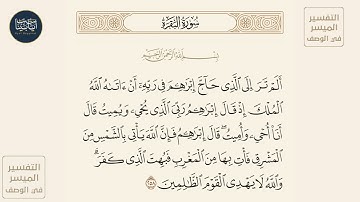 سُورَةُ البَقَرَةِ
التفسير
الميسر
في الوصف
بِسْمِ اللَّهِ الرَّحْمَٰنِ الرَّحِيمِ
أَلَمْ تَرَ إِلَى الَّذِي حَاجَّ إِبْرَاهِيمَ فِي رَبِّهِ أَنْ ءَاتَاهُ اللَّهُ
الْمُلْكَ إِذْ قَالَ إِبْرَاهِيمُ رَبِّيَ الَّذِي يُحْيِي وَيُمِيتُ قَالَ
أَنَا أُحْيِي وَأُمِيتُ قَالَ إِبْرَاهِيمُ فَإِنَّ اللَّهَ يَأْتِي بِالشَّمْسِ مِنَ
الْمَشْرِقِ فَأْتِ بِهَا مِنَ الْمَغْرِبِ فَبُهِتَ الَّذِي كَفَرَ
وَاللَّهُ لَا يَهْدِي الْقَوْمَ الظَّالِمِينَ ٢٥٨
التفسير
الميسر
في الوصف